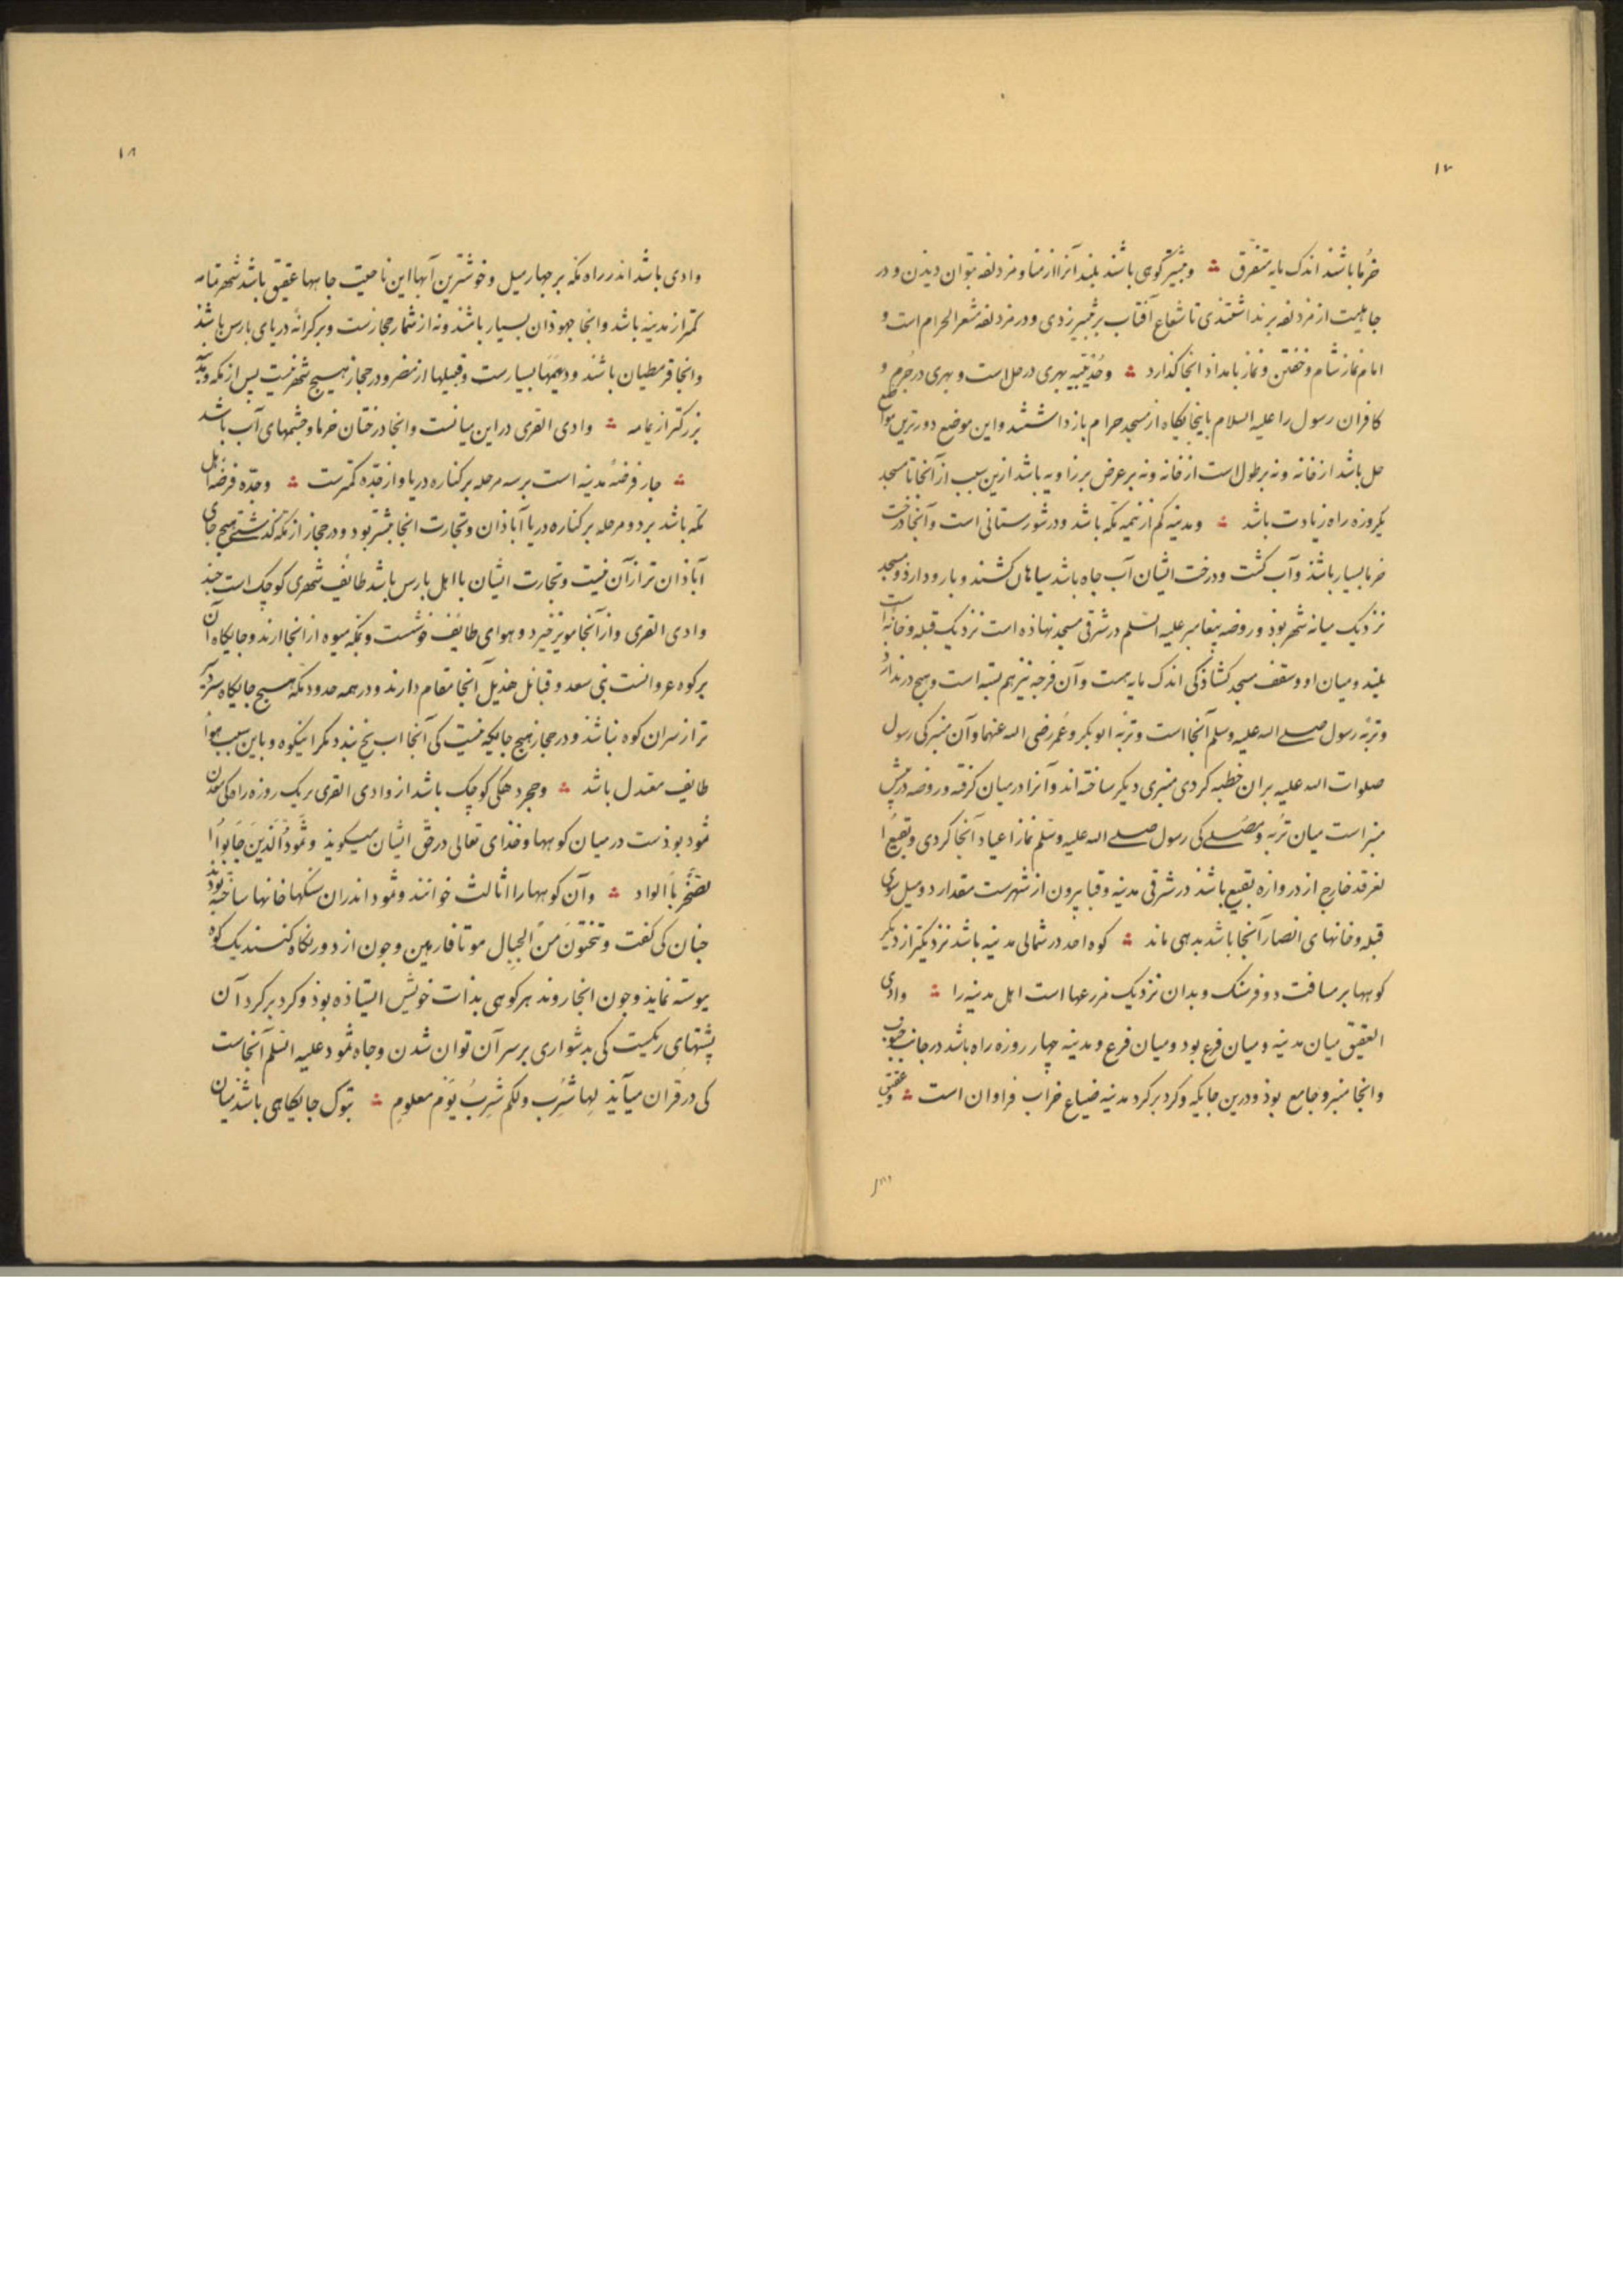 ۱۷
خرما باشند اندک مایه متفرق ؞ و ثبیر کوهی باشد بلند آنرا از منا و مزدلفه بتوان دیدن و در
جاهلیت از مزدلفه برنداشتندی تا شعاع آفتاب بر ثبیر زدی و در مزدلفه مشعر الحرام است و
امام نماز شام و خفتن و نماز بامداد انجا کذارد ؞ و حدیبیه بهری در حل است و بهری در حرم و
کافران رسول را علیه السلام باینجایکاه از مسجد حرام باز داشتند و این موضع دورترین مواضع
حل باشد از خانه و نه بر طول است از خانه و نه بر عرض بر زاویه باشد ازین سبب از آنجا تا مسجد
یکروزه راه زیادت باشد ؞ و مدینه کم از نیمه مکه باشد و در شورستانی است و آنجا درخت
خرما بسیار باشذ و آب کشت و درخت ایشان آب جاه باشد سیاهان کشند و بارو دارذ و مسجد
نزدیک میانه شهر بوذ و روضه پیغامبر علیه السلم در شرقی مسجد نهاذه است نزدیک قبله و خانه است
بلند و میان او و سقف مسجد کشاذکی اندک مایه هست و آن فرجه نیز هم بسته است و هیچ در ندارد
و تربه رسول صلی الله علیه و سلم آنجا است و تربه ابو بکر و عمر رضی الله عنهما و آن منبر کی رسول
صلوات الله علیه بران خطبه کردی منبری دیکر ساخته اند و آنرا در میان کرفته و روضه در پیش
منبر است میان تربه و مصلی کی رسول صلی الله علیه وسلم نماز اعیاد آنجا کردی و بقیع ا
لغرقد خارج از دروازه بقیع باشذ در شرقی مدینه و قبا بیرون از شهرست مقدار دو میل سوی
قبله و خانهای انصار آنجا باشد بدهی ماند ؞ کوه احد در شمالی مدینه باشد نزدیکتر از دیکر
کوهها بر مسافت دو فرسنک و بدان نزدیک مزرعها است اهل مدینه را ؞ وادی
العقیق میان مدینه و میان فرع بود و میان فرع و مدینه چهار روزه راه باشد در جانب جنوب
وانجا منبر و جامع بوذ و درین جایکه و کرد بر کرد مدینه ضیاع خراب فراوان است ؞ و عقیق
۱۸
وادی باشد اندر راه مکه بر جهار میل و خوشترین آبها این ناحیت جاهها عقیق باشد شهر یمامه
کمتر از مدینه باشد وانجا جهوذان بسیار باشند و نه از شمار حجازست و بر کرانه دریای بارس باشذ
وانجا قرمطیان باشند و دیهها بسیارست و قبیلها از مضر و در حجاز هیچ شهر نیست بس از مکه و مدینه
بزرکتر از یمامه ؞ وادی القری در این میانست وانجا درختان خرما و چشمهای آب باشد
؞ جار فرضه مدینه است بر سه مرحله بر کناره دریا و از جده کمترست ؞ و جده فرضه اهل
مکه باشد بر دو مرحله بر کناره دریا آباذان و تجارت انجا بیشتر بود و در حجاز از مکه کذشته هیج جای
آباذان تر از آن نیست و تجارت ایشان با اهل بارس باشد طائف شهری کوچک است جند
وادی القری و از آنجا مویز خیزد و هوای طائف خوشست و بمکه میوه از انجا ارند و جایکاه آن
بر کوه غزوانست بنی سعد و قبائل هذیل آنجا مقام دارند و در همه حدود مکه هیچ جایکاه سرد
تر از سران کوه نباشذ و در حجاز هیج جایکه نیست کی آنجا اب یخ بندد مکر اینکوه و باین سبب هواء
طایف معتدل باشد ؞ و حجر دهکی کوچک باشد از وادی القری بر یک روزه راه کی معدن
ثمود بوذست در میان کوهها و خذای تعالی در حق ایشان میکویذ وَثَمُودُ الَّذِینَ جَابُوا ا
لصَّخْرَ بِالواد ؞ و آن کوهها را اثالث خوانند و ثمود اندران سنکها خانها ساخته بوذند
جنان کی کفت وتنحتونَ منَ الجبالِ موتا فارهین و جون از دور نکاه کنند یک کوه
پیوسته نمایذ و جون انجا روند هر کوهی بذات خویش ایستاذه بوذ و کرد بر کرد آن
پشتهای ریکست کی بدشواری بر سر آن توان شدن و جاه ثمود علیه السلم آنجاست
کی در قران میآیذ لها شِربٌ ولکم شِربُ یَوْم معلومٍ ؞ تبوک جایکاهی باشذ میان